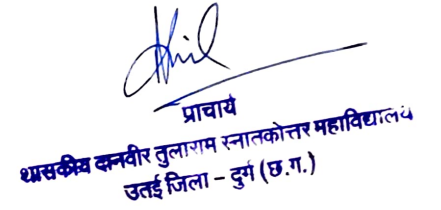 प्राचार्य
शासकीय दानवीर तुलाराम स्नातकोत्तर महाविद्यालय
उतई जिला – दुर्ग (छ.ग.)